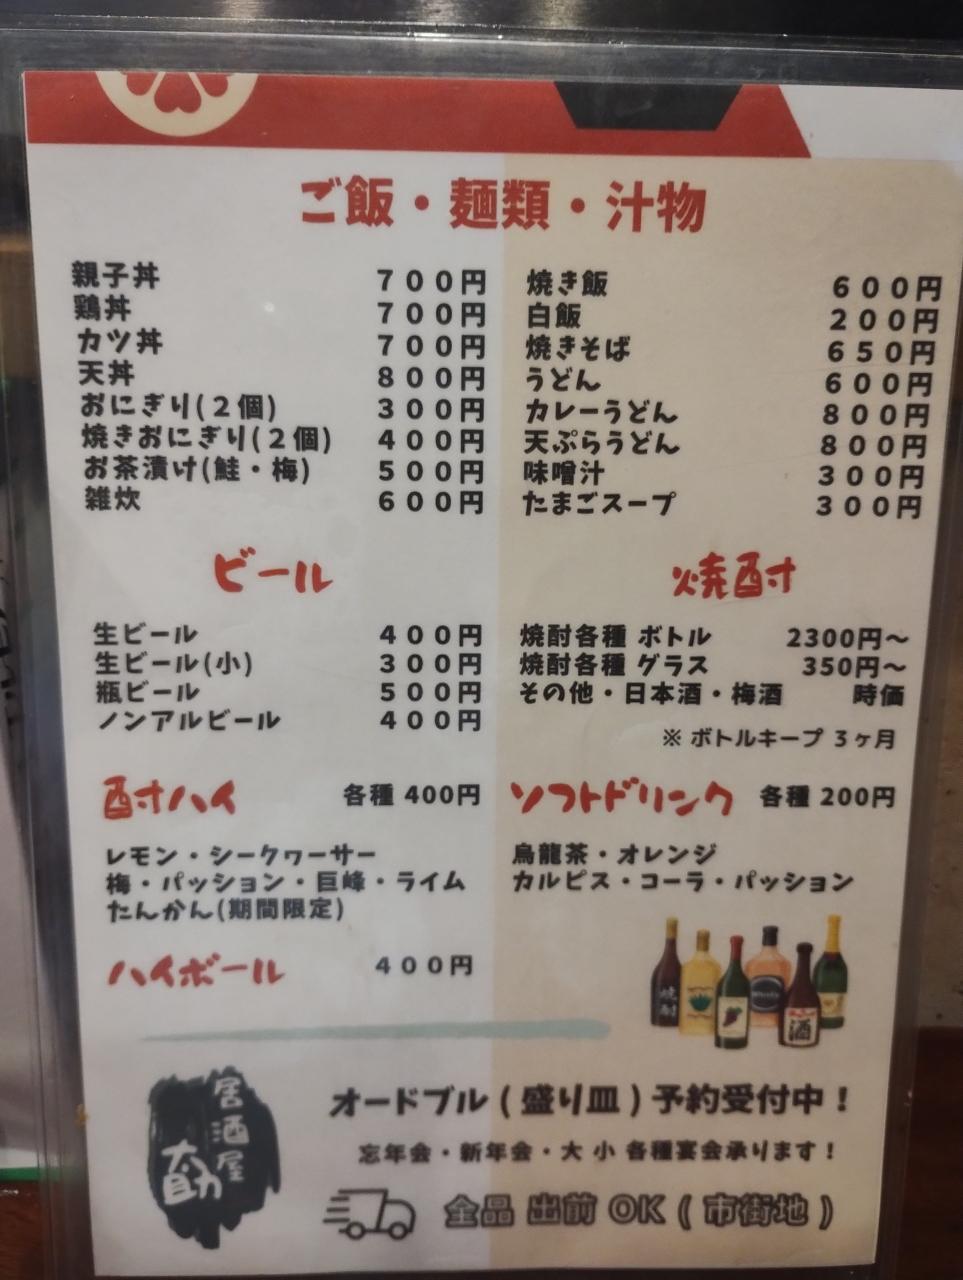 ご飯・麺類・汁物
親子丼 700円
鶏丼 700円
カツ丼 700円
天丼 800円
おにぎり(２個) 300円
焼きおにぎり(２個) 400円
お茶漬け(鮭・梅) 500円
雑炊 600円
焼き飯 600円
白飯 200円
焼きそば 650円
うどん 600円
カレーうどん 800円
天ぷらうどん 800円
味噌汁 300円
たまごスープ 300円
ビール
生ビール 400円
生ビール(小) 300円
瓶ビール 500円
ノンアルビール 400円
焼酎
焼酎各種 ボトル 2300円～
焼酎各種 グラス 350円～
その他・日本酒・梅酒 時価
※ ボトルキープ 3ヶ月
酎ハイ 各種 400円
レモン・シークヮーサー
梅・パッション・巨峰・ライム
たんかん(期間限定)
ハイボール 400円
ソフトドリンク 各種 200円
烏龍茶・オレンジ
カルピス・コーラ・パッション
焼酎
酒
オードブル(盛り皿)予約受付中！
忘年会・新年会・大 小 各種宴会承ります！
全品 出前 OK (市街地)
居酒屋